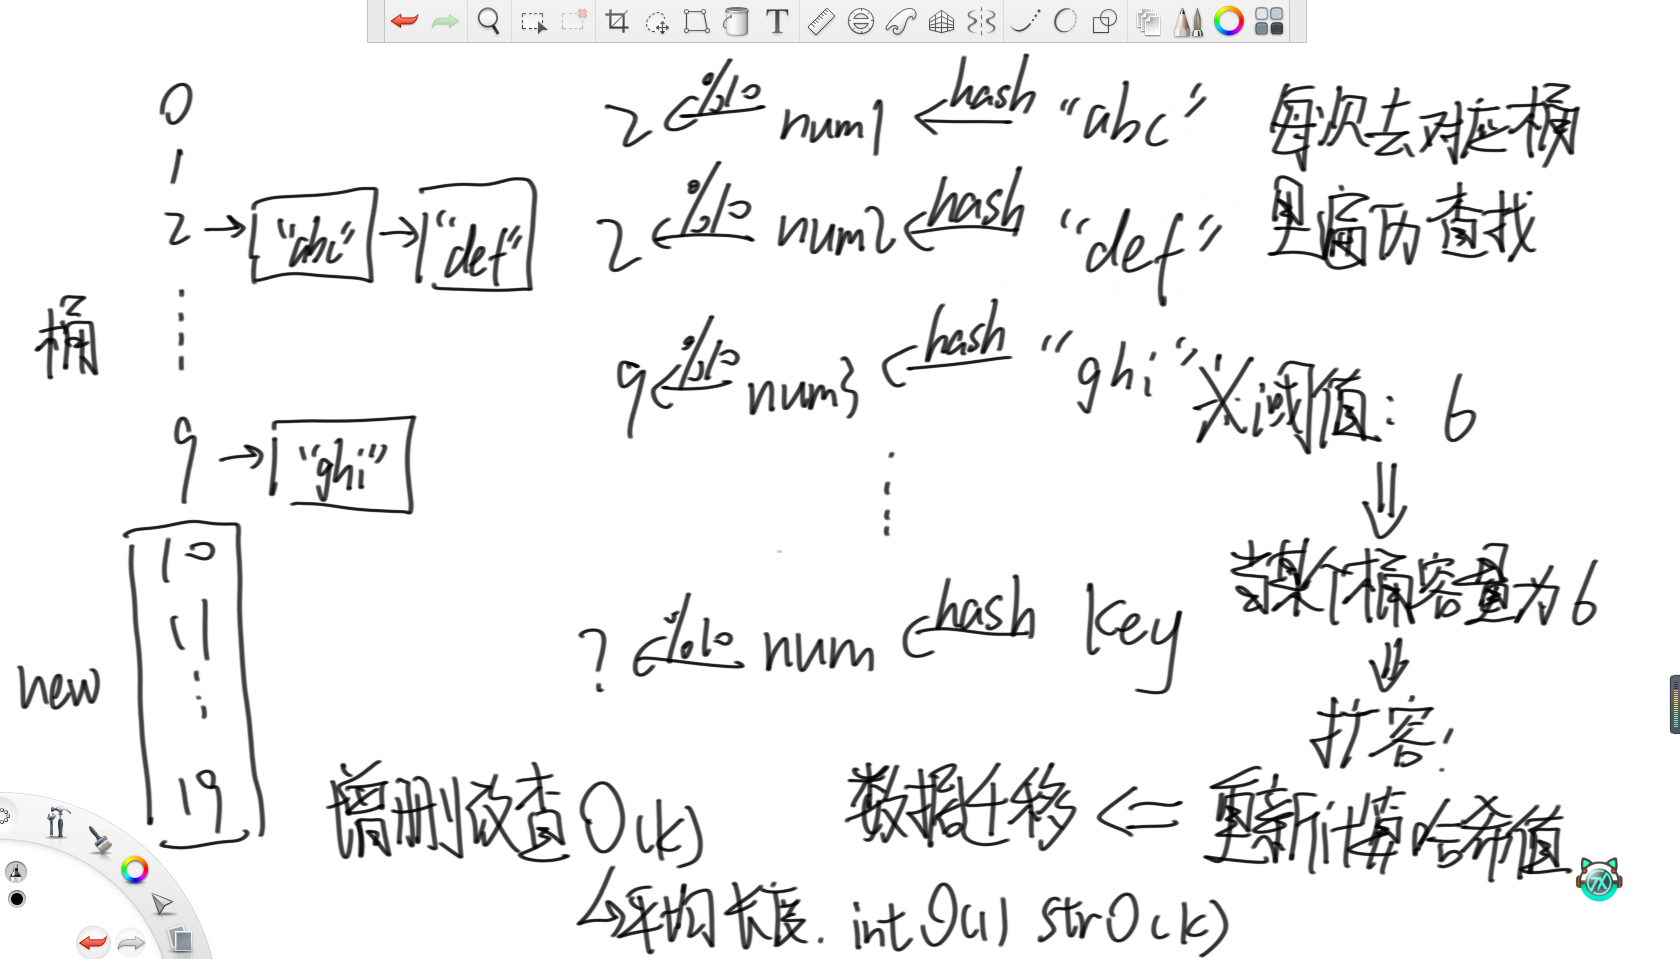 0
1
2 → "abc" → "def"
桶
9 → "ghi"
new
10
11
19
2 ← %10 num1 ← hash "abc"
2 ← %10 num2 ← hash "def"
9 ← %10 num3 ← hash "ghi"
? ← %10 num ← hash key
每次去对应桶
里遍历查找
阈值: 6
⇓
当某个桶容量为6
⇓
扩容!
重新计算哈希值
数据迁移 ⇐
增删改查 O(k)
↳ 平均长度. int O(1) str O(k)